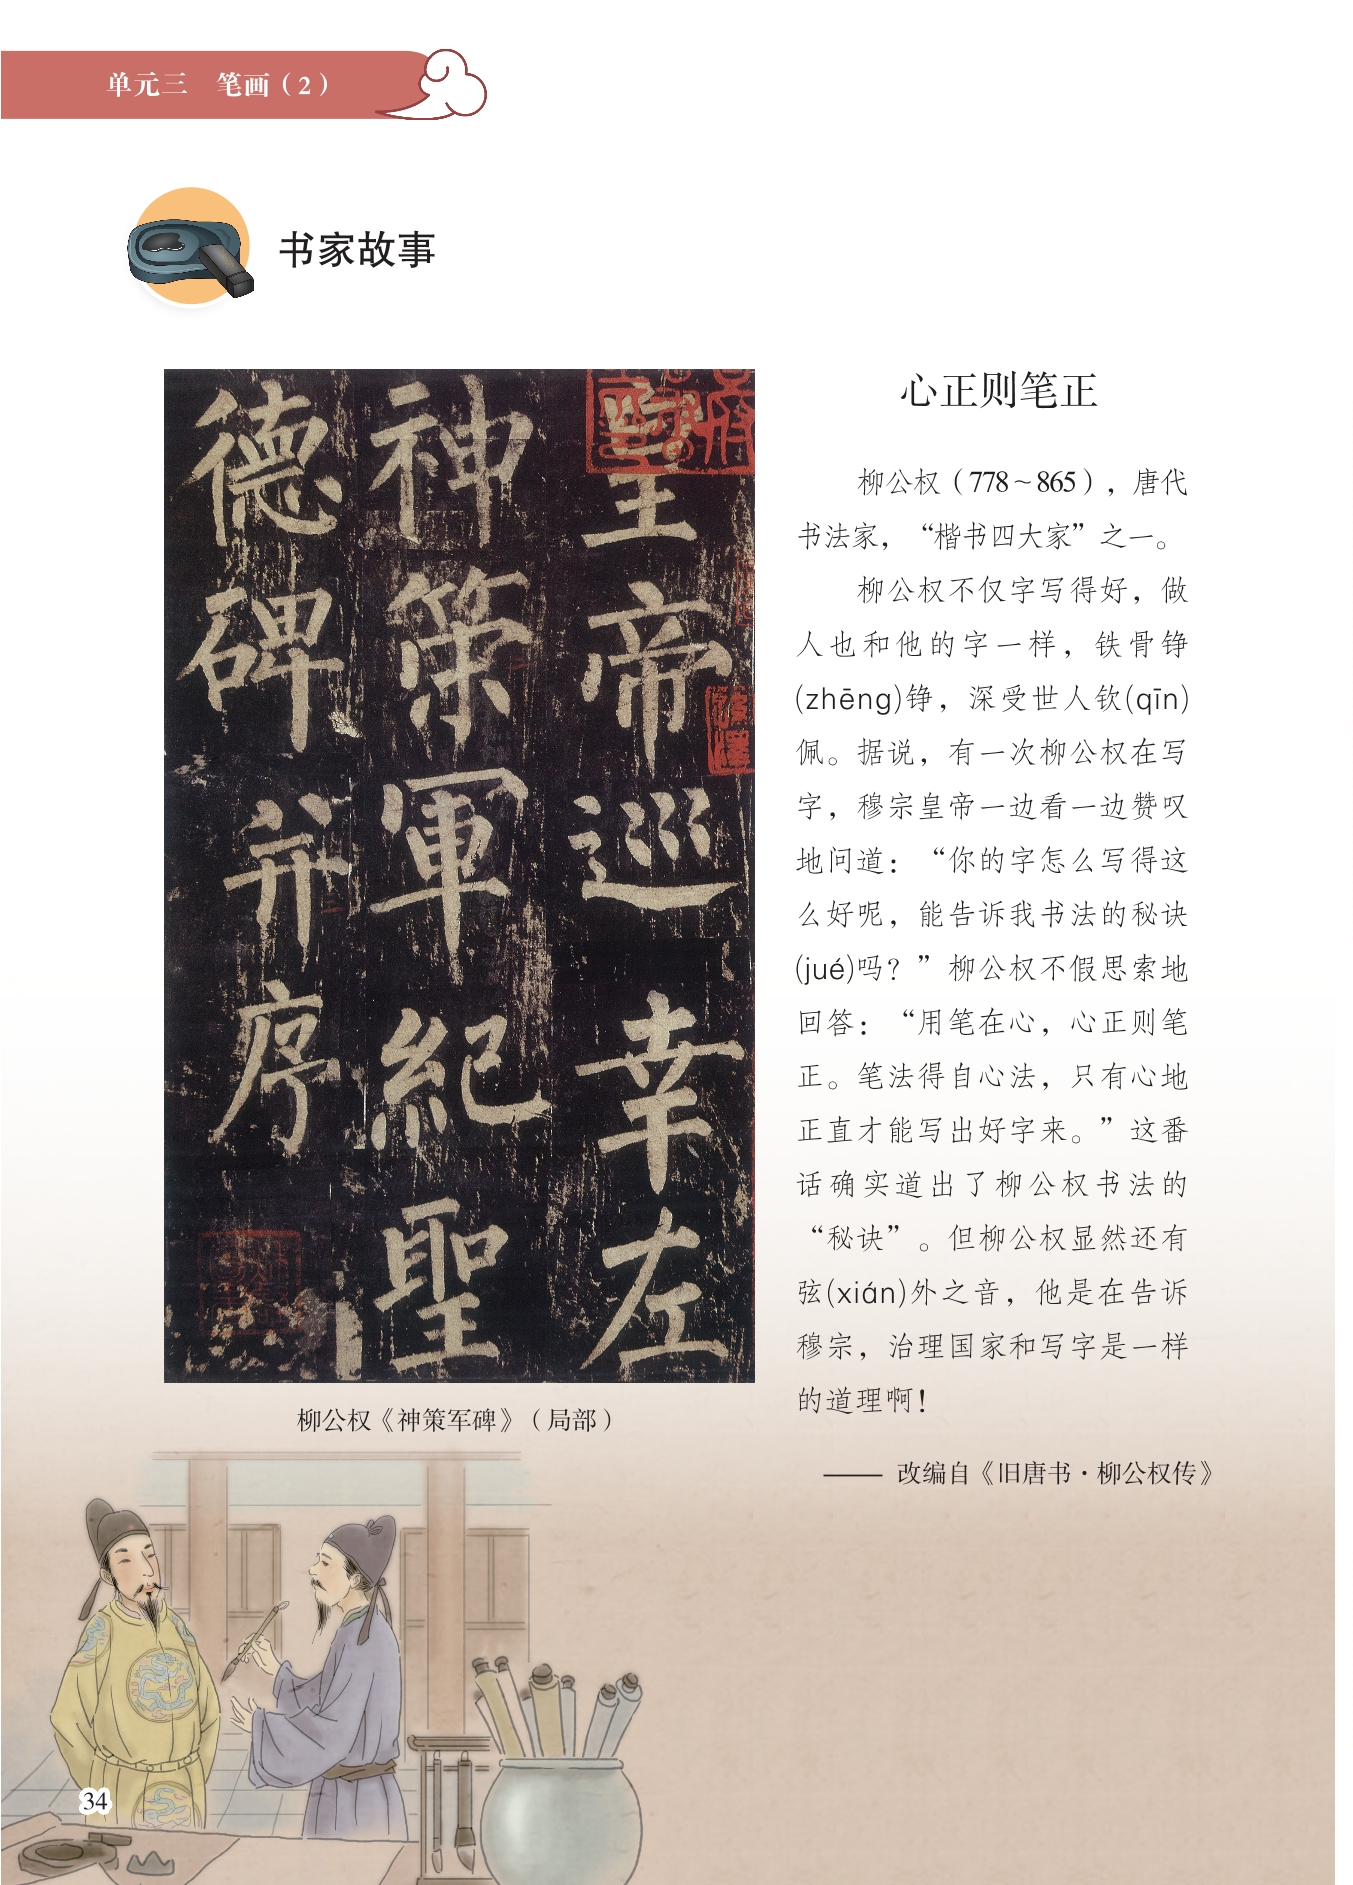 单元三 笔画（2）
书家故事
皇帝巡幸左
神策軍紀聖
德碑并序
心正则笔正
柳公权（778～865），唐代
书法家，“楷书四大家”之一。
柳公权不仅字写得好，做
人也和他的字一样，铁骨铮
(zhēng)铮，深受世人钦(qīn)
佩。据说，有一次柳公权在写
字，穆宗皇帝一边看一边赞叹
地问道：“你的字怎么写得这
么好呢，能告诉我书法的秘诀
(jué)吗？”柳公权不假思索地
回答：“用笔在心，心正则笔
正。笔法得自心法，只有心地
正直才能写出好字来。”这番
话确实道出了柳公权书法的
“秘诀”。但柳公权显然还有
弦(xián)外之音，他是在告诉
穆宗，治理国家和写字是一样
的道理啊！
—— 改编自《旧唐书·柳公权传》
柳公权《神策军碑》（局部）
34